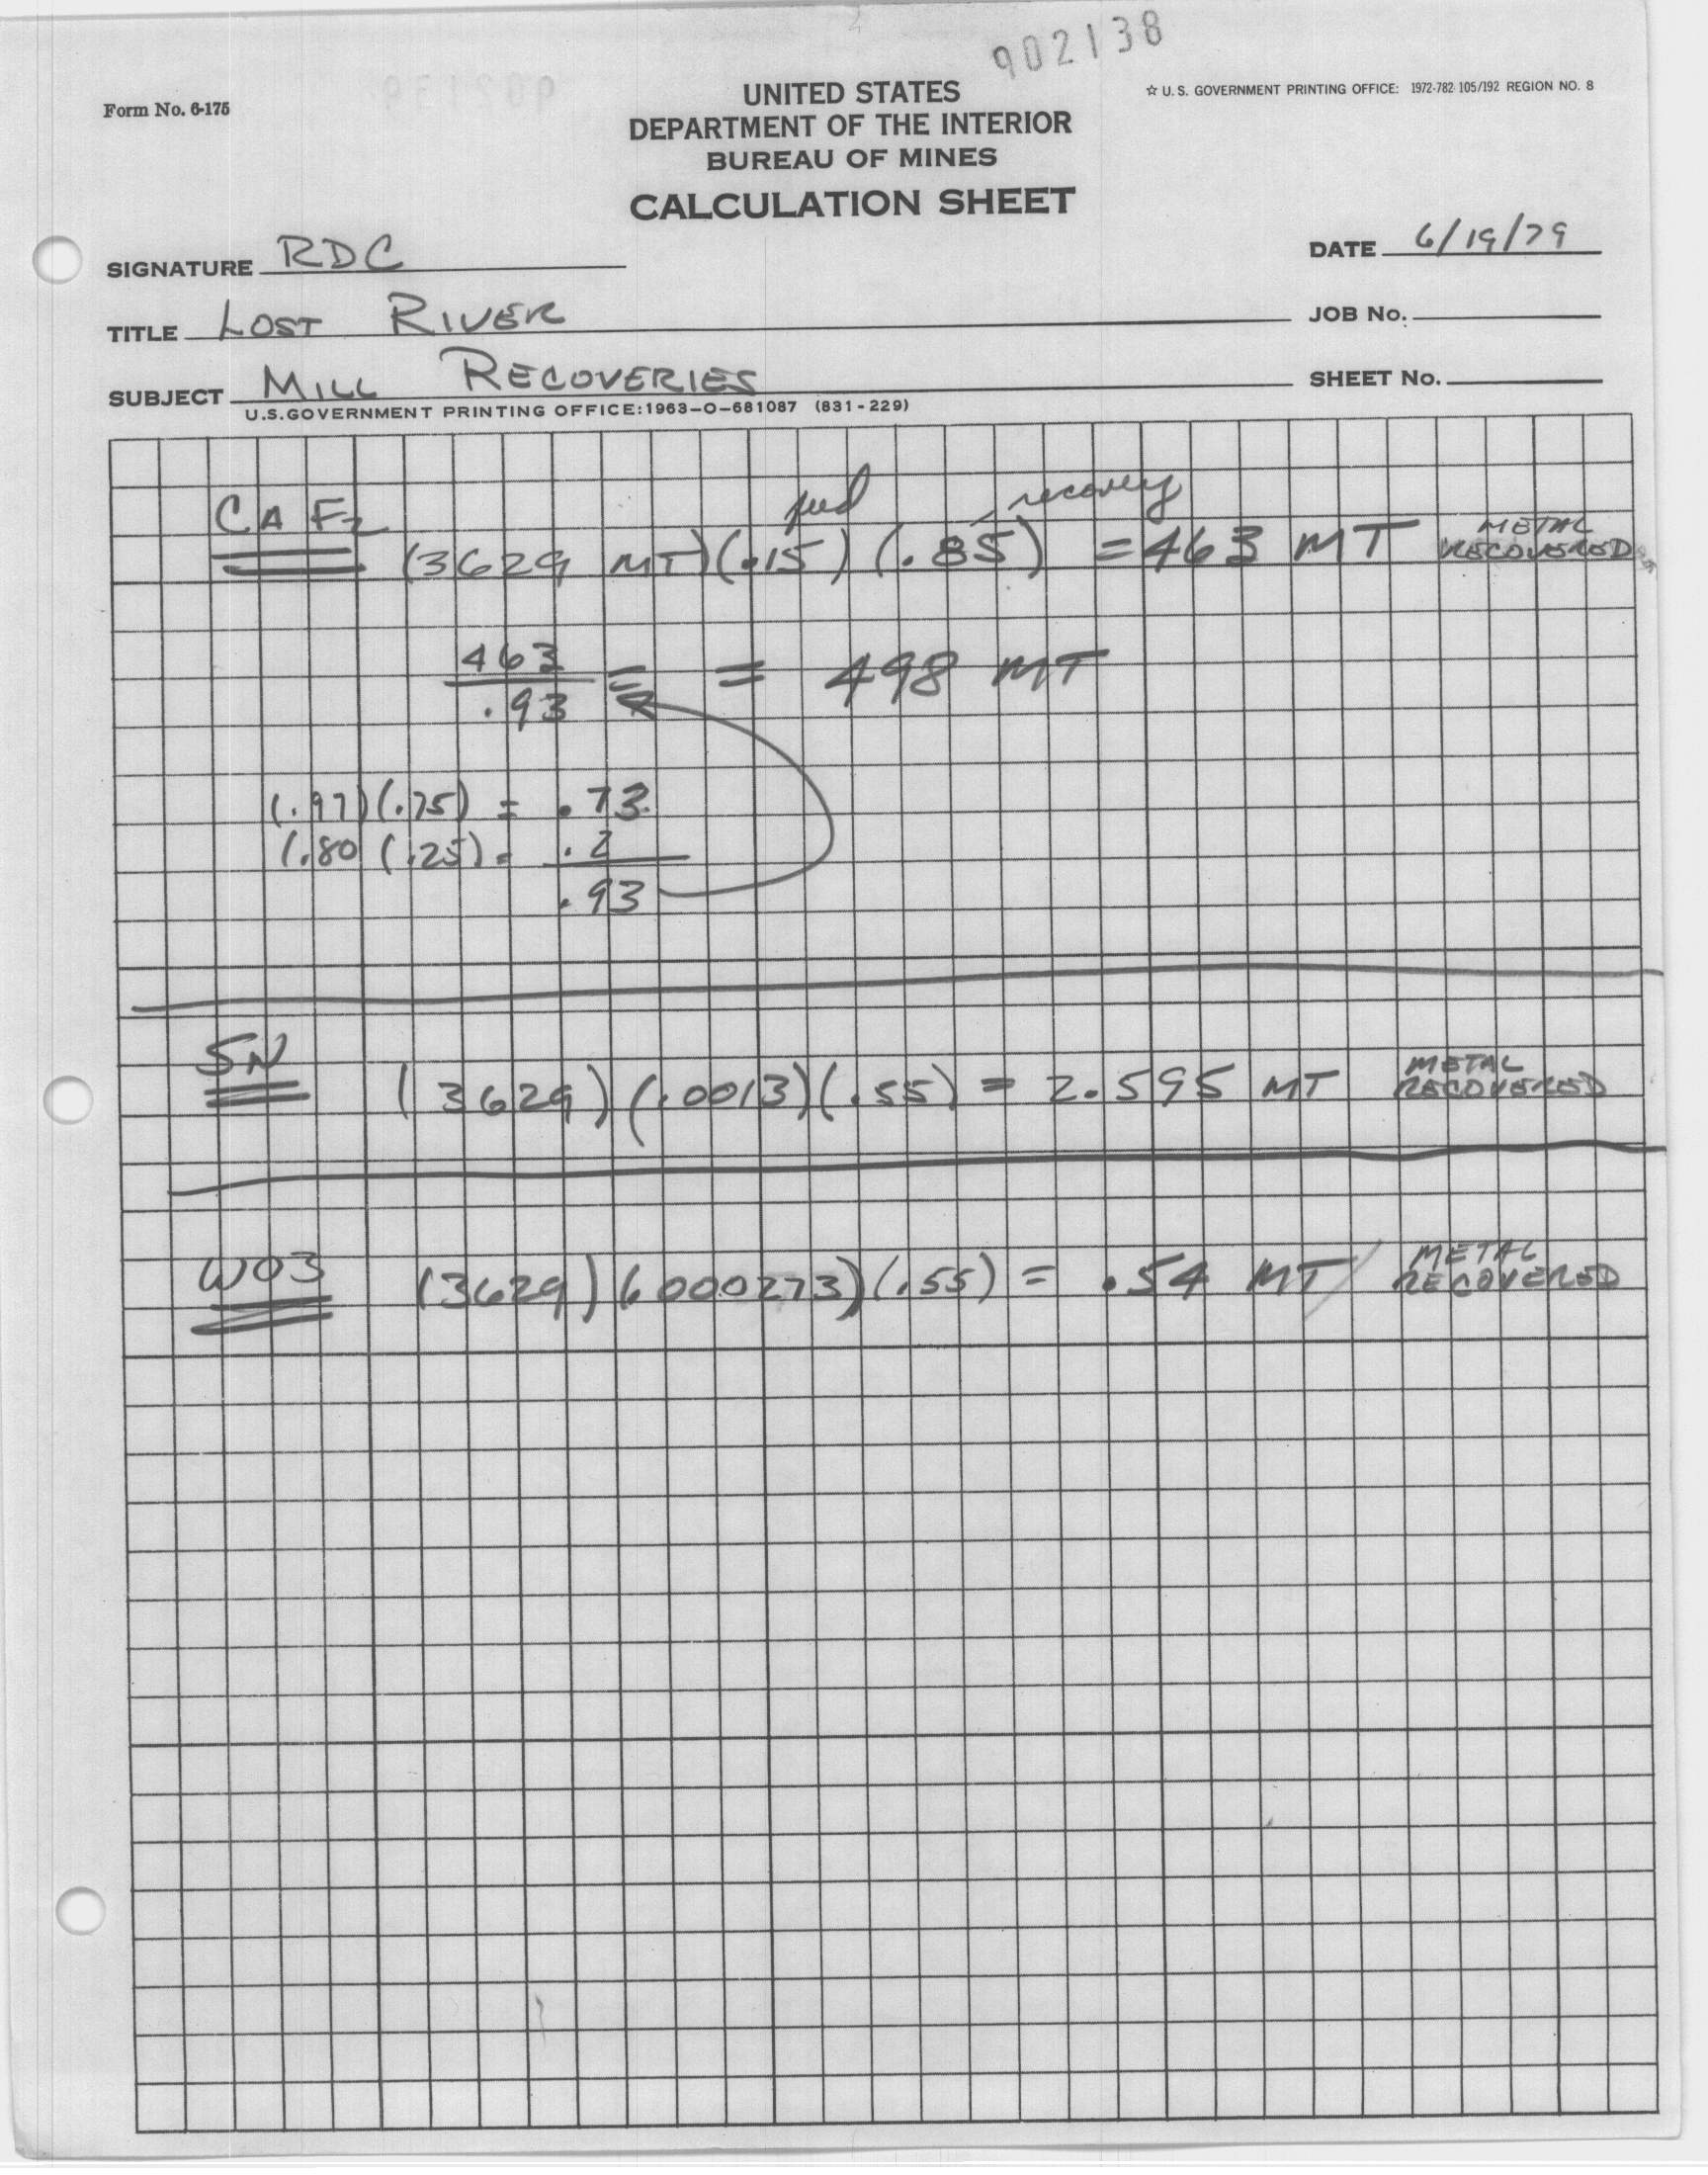 902138
Form No. 6-175
UNITED STATES
☆ U. S. GOVERNMENT PRINTING OFFICE: 1972-782 105/192 REGION NO. 8
DEPARTMENT OF THE INTERIOR
BUREAU OF MINES
CALCULATION SHEET
SIGNATURE RDC
DATE 6/19/79
TITLE LOST RIVER
JOB No.
SUBJECT MILL RECOVERIES
SHEET No.
U.S.GOVERNMENT PRINTING OFFICE:1963-O-681087 (831-229)
feed recovery
CAF2
(3629 MT)(.15)(.85) = 463 MT METAL RECOVERED
463
.93
= = 498 MT
(.97)(.75) = .73
(.80 (.25) = .2
.93
SN
(3629)(.0013)(.55) = 2.595 MT METAL RECOVERED
WO3
(3629)(.000273)(.55) = .54 MT METAL RECOVERED